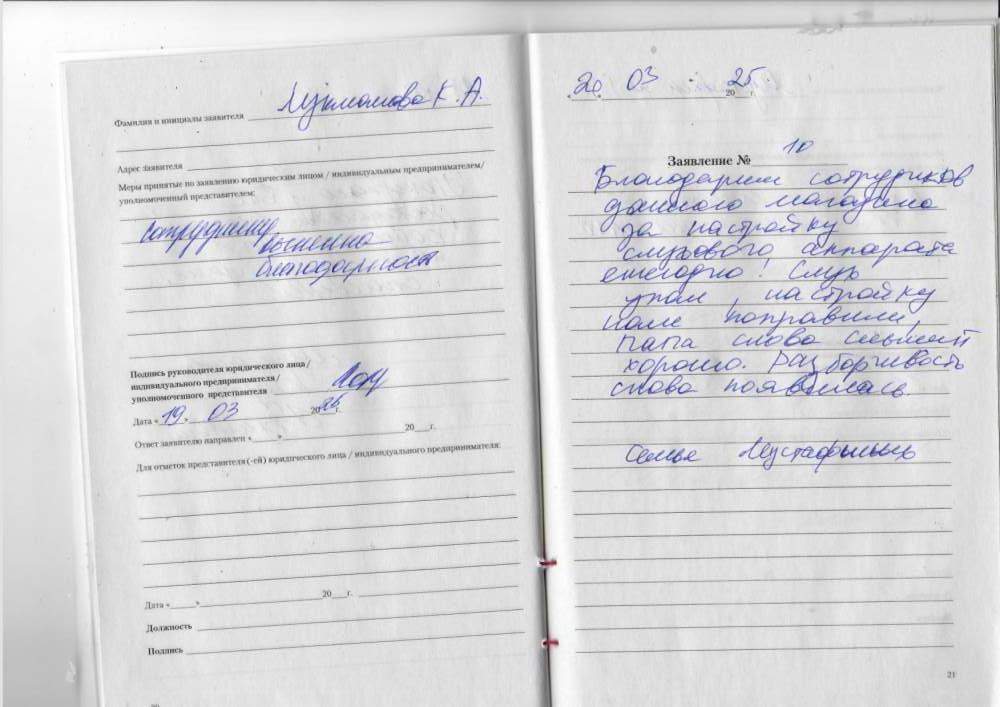 Фамилия и инициалы заявителя К. А.
Адрес заявителя
Меры принятые по заявлению юридическим лицом / индивидуальным предпринимателем/
уполномоченный представителем:
Сотруднику
вынесена
благодарность
Подпись руководителя юридического лица /
индивидуального предпринимателя /
уполномоченного представителя
Дата «19» 03 20 г.
Ответ заявителю направлен «____» 20___г.
Для отметок представителя (-ей) юридического лица / индивидуального предпринимателя:
Дата «____» 20___г.
Должность
Подпись
20 03 2025 г.
Заявление № 10
Благодарим сотрудников
данного магазина
за настройку
слухового аппарата
ежегодно! Слух
упал, настройку
нам поправили,
папа снова слышит
хорошо. Разборчивость
снова появилась
Семья
21